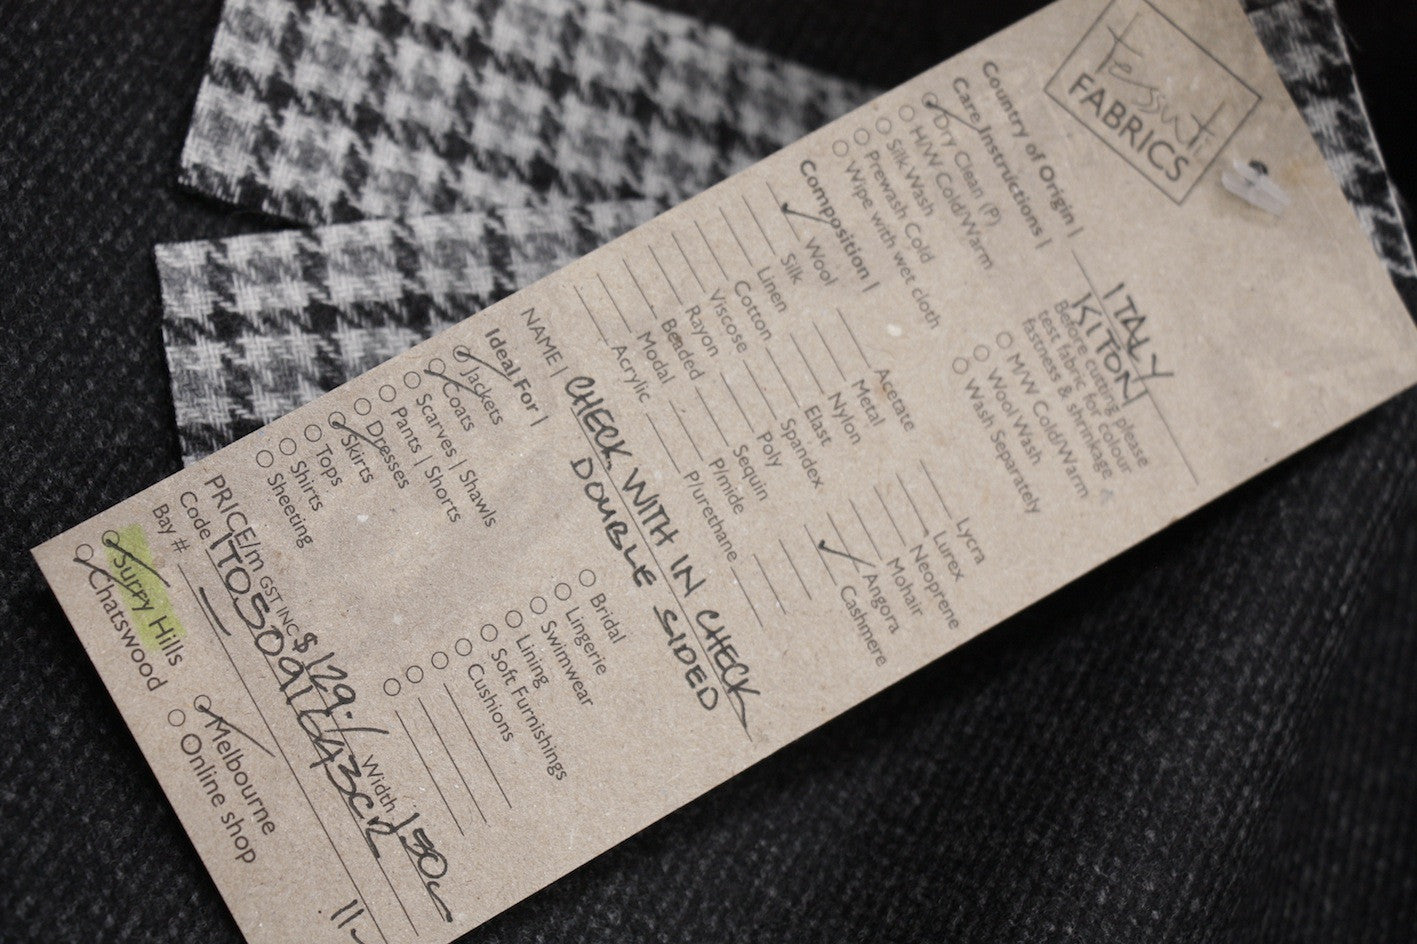 tessuti
FABRICS
Country of Origin | ITALY
KITON
Care Instructions |
Before cutting please
test fabric for colour
fastness & shrinkage
Dry Clean (P)
H/W Cold/Warm
M/W Cold/Warm
Silk Wash
Wool Wash
Prewash Cold
Wash Separately
Wipe with wet cloth
Composition |
Wool
Acetate
Lycra
Silk
Metal
Lurex
Linen
Nylon
Neoprene
Cotton
Elast
Mohair
Viscose
Spandex
Angora
Rayon
Poly
Cashmere
Beaded
Sequin
Modal
P/mide
Acrylic
P/urethane
NAME | CHECK WITH IN CHECK
DOUBLE SIDED
Ideal For |
Jackets
Bridal
Coats
Lingerie
Scarves | Shawls
Swimwear
Pants | Shorts
Lining
Dresses
Soft Furnishings
Skirts
Cushions
Tops
Shirts
Sheeting
PRICE/m GST INC $129.- Width 150
Code
Bay #
Surry Hills
Melbourne
Chatswood
Online shop